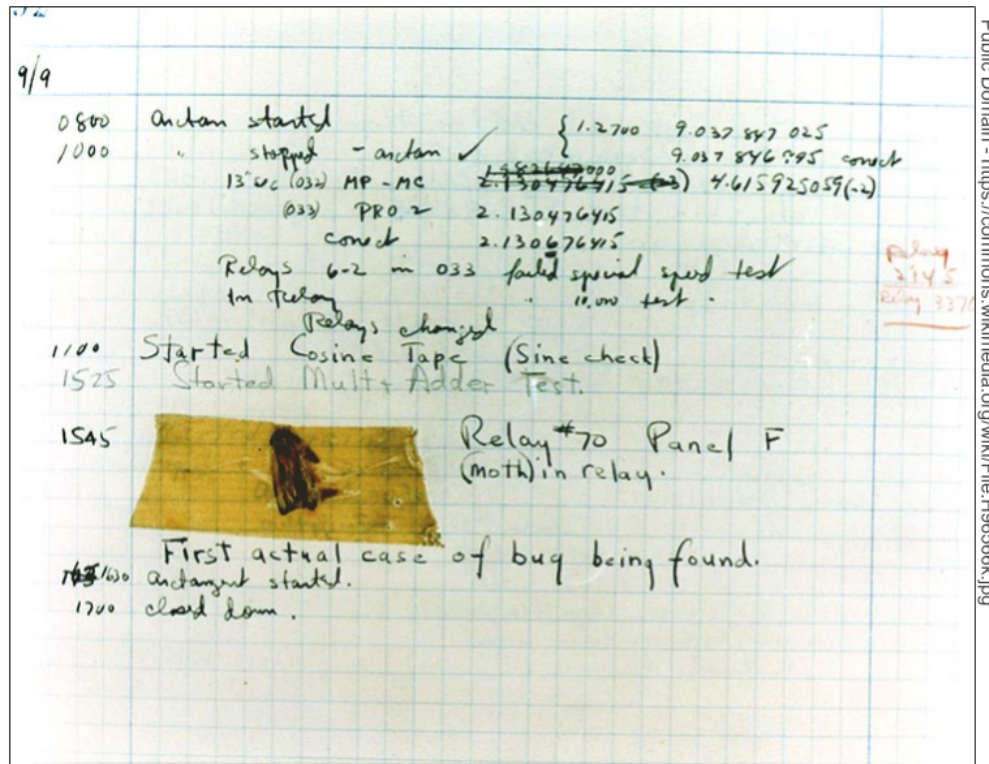 9/9
0800 Antan started { 1.2700 9.037 847 025
1000 " stopped - antan ✓ 9.037 846 995 conect
13"uc (032) MP - MC 2.130476415 (-3) 4.615925059(-2)
(033) PRO 2 2.130476415
conect 2.130676415
Relays 6-2 in 033 failed special speed test
In Relay " 10.000 test .
Relays changed
Relay
2145
Relay 3370
1100 Started Cosine Tape (Sine check)
1525 Started Mult + Adder Test.
1545 Relay #70 Panel F
(moth) in relay.
First actual case of bug being found.
1630 antangent started.
1700 closed down.
Public Domain - https://commons.wikimedia.org/wiki/File:H96566k.jpg